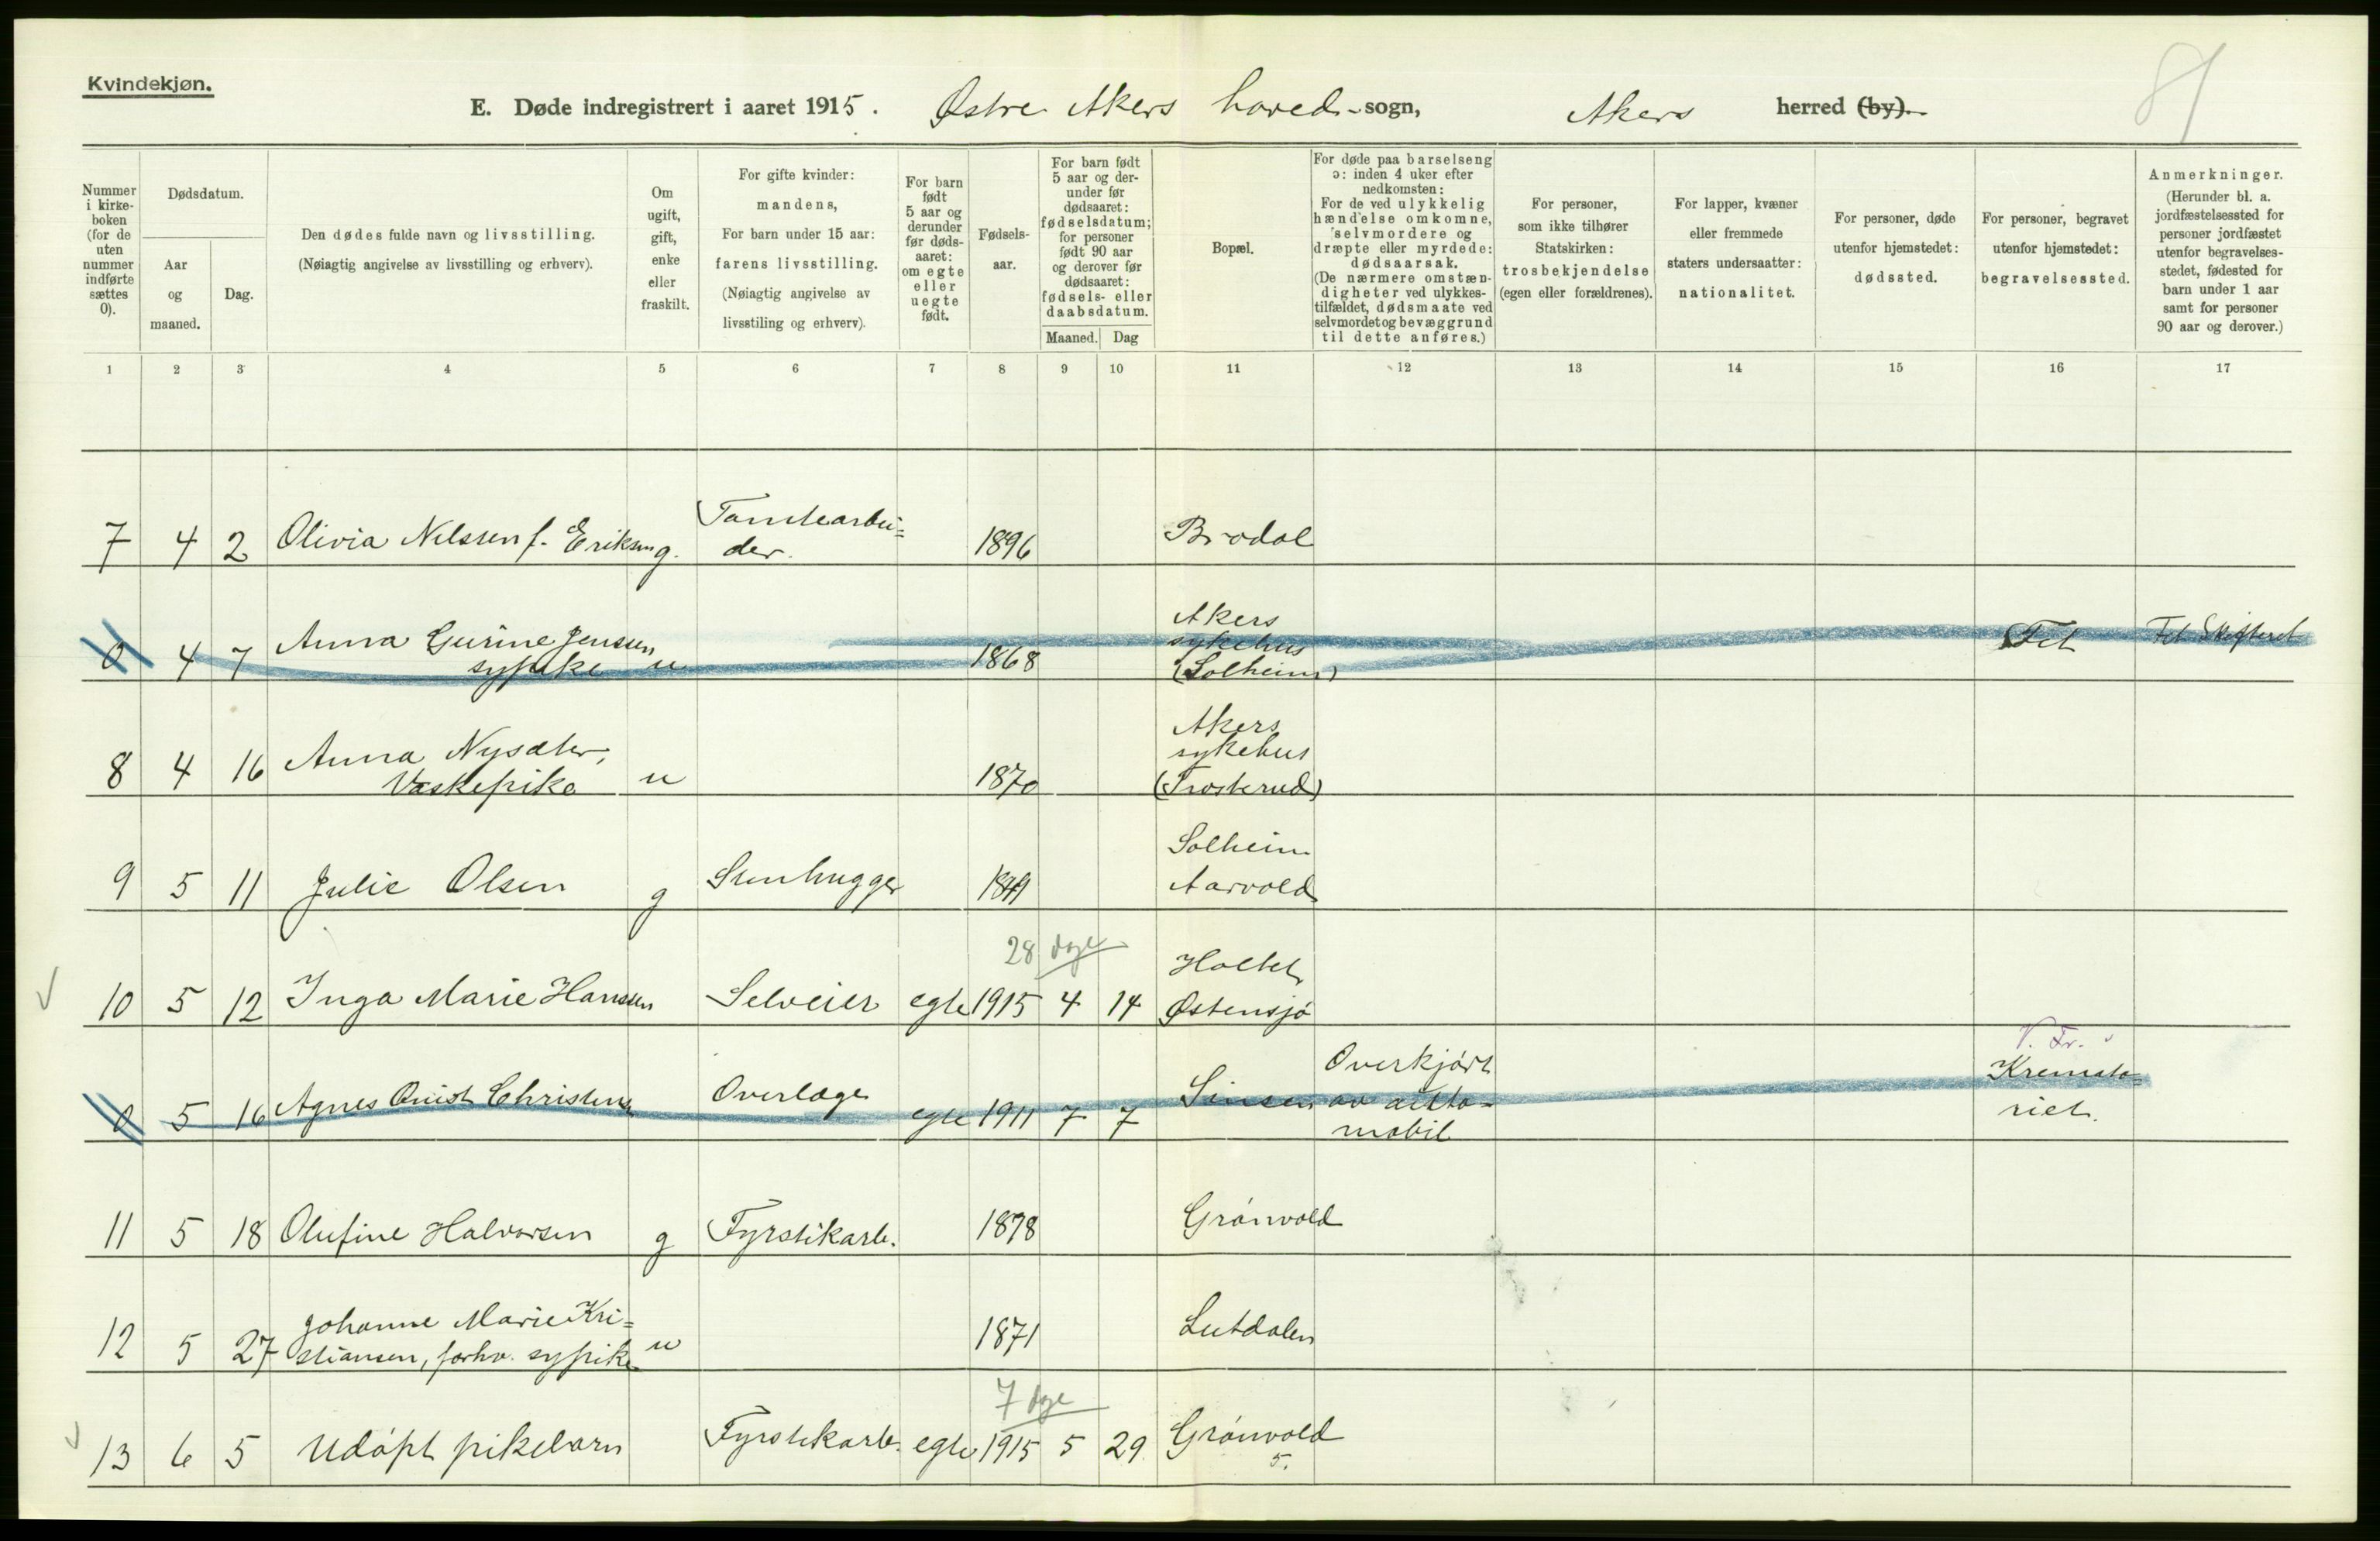 Kvindekjøn.
81
E. Døde indregistrert i aaret 1915. Østre Akers hoved-sogn, Akers herred (by).
Nummer i kirke-boken (for de uten nummer indførte sættes 0).
Dødsdatum.
Aar og maaned.
Dag.
Den dødes fulde navn og livsstilling. (Nøiagtig angivelse av livsstilling og erhverv).
Om ugift, gift, enke eller fraskilt.
For gifte kvinder: mandens, For barn under 15 aar: farens livsstilling. (Nøiagtig angivelse av livsstiling og erhverv).
For barn født 5 aar og derunder før døds-aaret: om egte eller uegte født.
Fødsels-aar.
For barn født 5 aar og der-under før dødsaaret: fødselsdatum; for personer født 90 aar og derover før dødsaaret: fødsels- eller daabsdatum.
Maaned. Dag
Bopæl.
For døde paa barselseng ɔ: inden 4 uker efter nedkomsten: For de ved ulykkelig hændelse omkomne, selvmordere og dræpte eller myrdede: dødsaarsak. (De nærmere omstæn-digheter ved ulykkes-tilfældet, dødsmaate ved selvmordet og bevæggrund til dette anføres.)
For personer, som ikke tilhører Statskirken: trosbekjendelse (egen eller forældrenes).
For lapper, kvæner eller fremmede staters undersaatter: nationalitet.
For personer, døde utenfor hjemstedet: dødssted.
For personer, begravet utenfor hjemstedet: begravelsessted.
Anmerkninger. (Herunder bl. a. jordfæstelsessted for personer jordfæstet utenfor begravelses-stedet, fødested for barn under 1 aar samt for personer 90 aar og derover.)
1 2 3 4 5 6 7 8 9 10 11 12 13 14 15 16 17
7 4 2 Olivia Nilssen f. Eriksen g. Tomtearbei=
der. 1896 Brodal
0 4 7 Anna Gurine Jenssen
sypike u 1868 Akers
sykehus
(Solheim) Fet
8 4 16 Anna Nysæter,
Vaskepike u 1870 Akers
sykehus
(Trosterud)
9 5 11 Julie Olsen g Stenhugger Solheim
Aarvold
28 dge
10 5 12 Inga Marie Hanssen Selveier egte 1915 4 14 Holtet
Østensjø
0 5 16 Agnes Quist Christens Overlæge egte 1911 7 7 Sinsen Overkjørt
av auto=
mobil V. Fr.
Kremato=
riet.
11 5 18 Olufine Halvorsen g Fyrstikarb. 1878 Grønvold
12 5 27 Johanne Marie Kri=
stiansen, forhv. sypike u 1871 Lutdalen
7 dge
13 6 5 Udøpt pikebarn Fyrstikarb. egte 1915 5 29 Grønvold
5.